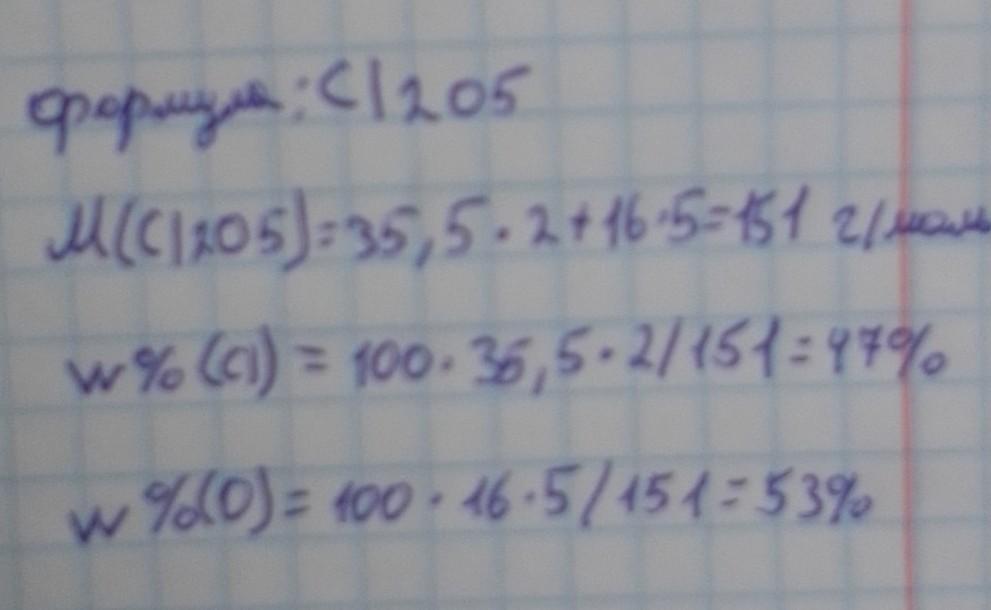 формула: Cl2O5
M(Cl2O5)=35,5·2+16·5=151 г/моль
w%(Cl) = 100·35,5·2/151=47%
w%(O)= 100·16·5/151=53%